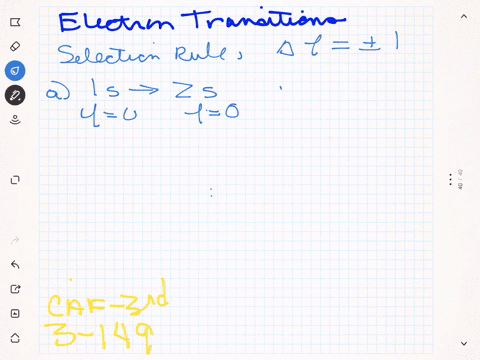 Electron Transitions
Selection Rule, Δℓ = ± 1
a) 1s → 2s
ℓ=0 ℓ=0
CAF-3rd
3-149